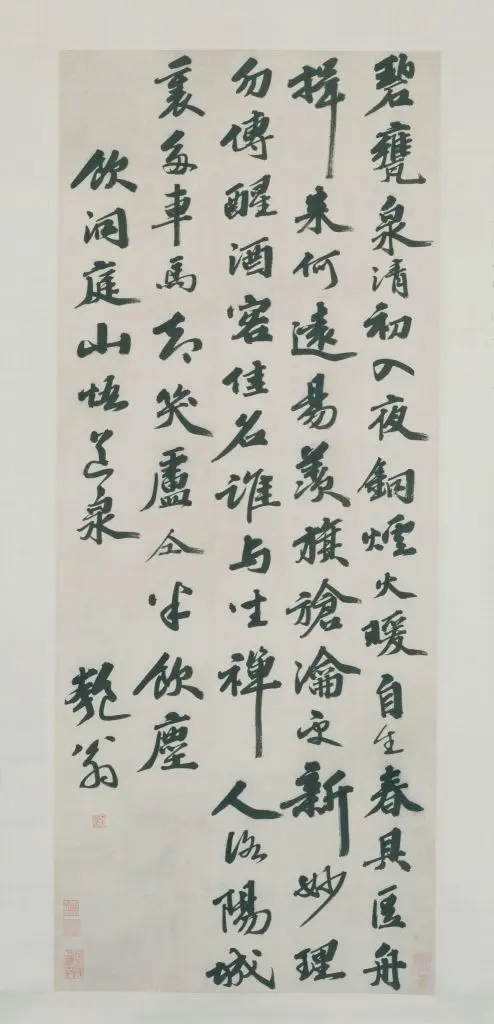 碧甕泉清初入夜銅爐火暖自生春具區舟
楫來何遠陽羨旗槍瀹更新妙理
勿傳醒酒客佳名誰与坐禪人洛陽城
裏多車馬却笑盧仝半飲塵
飲洞庭山悟道泉
匏翁